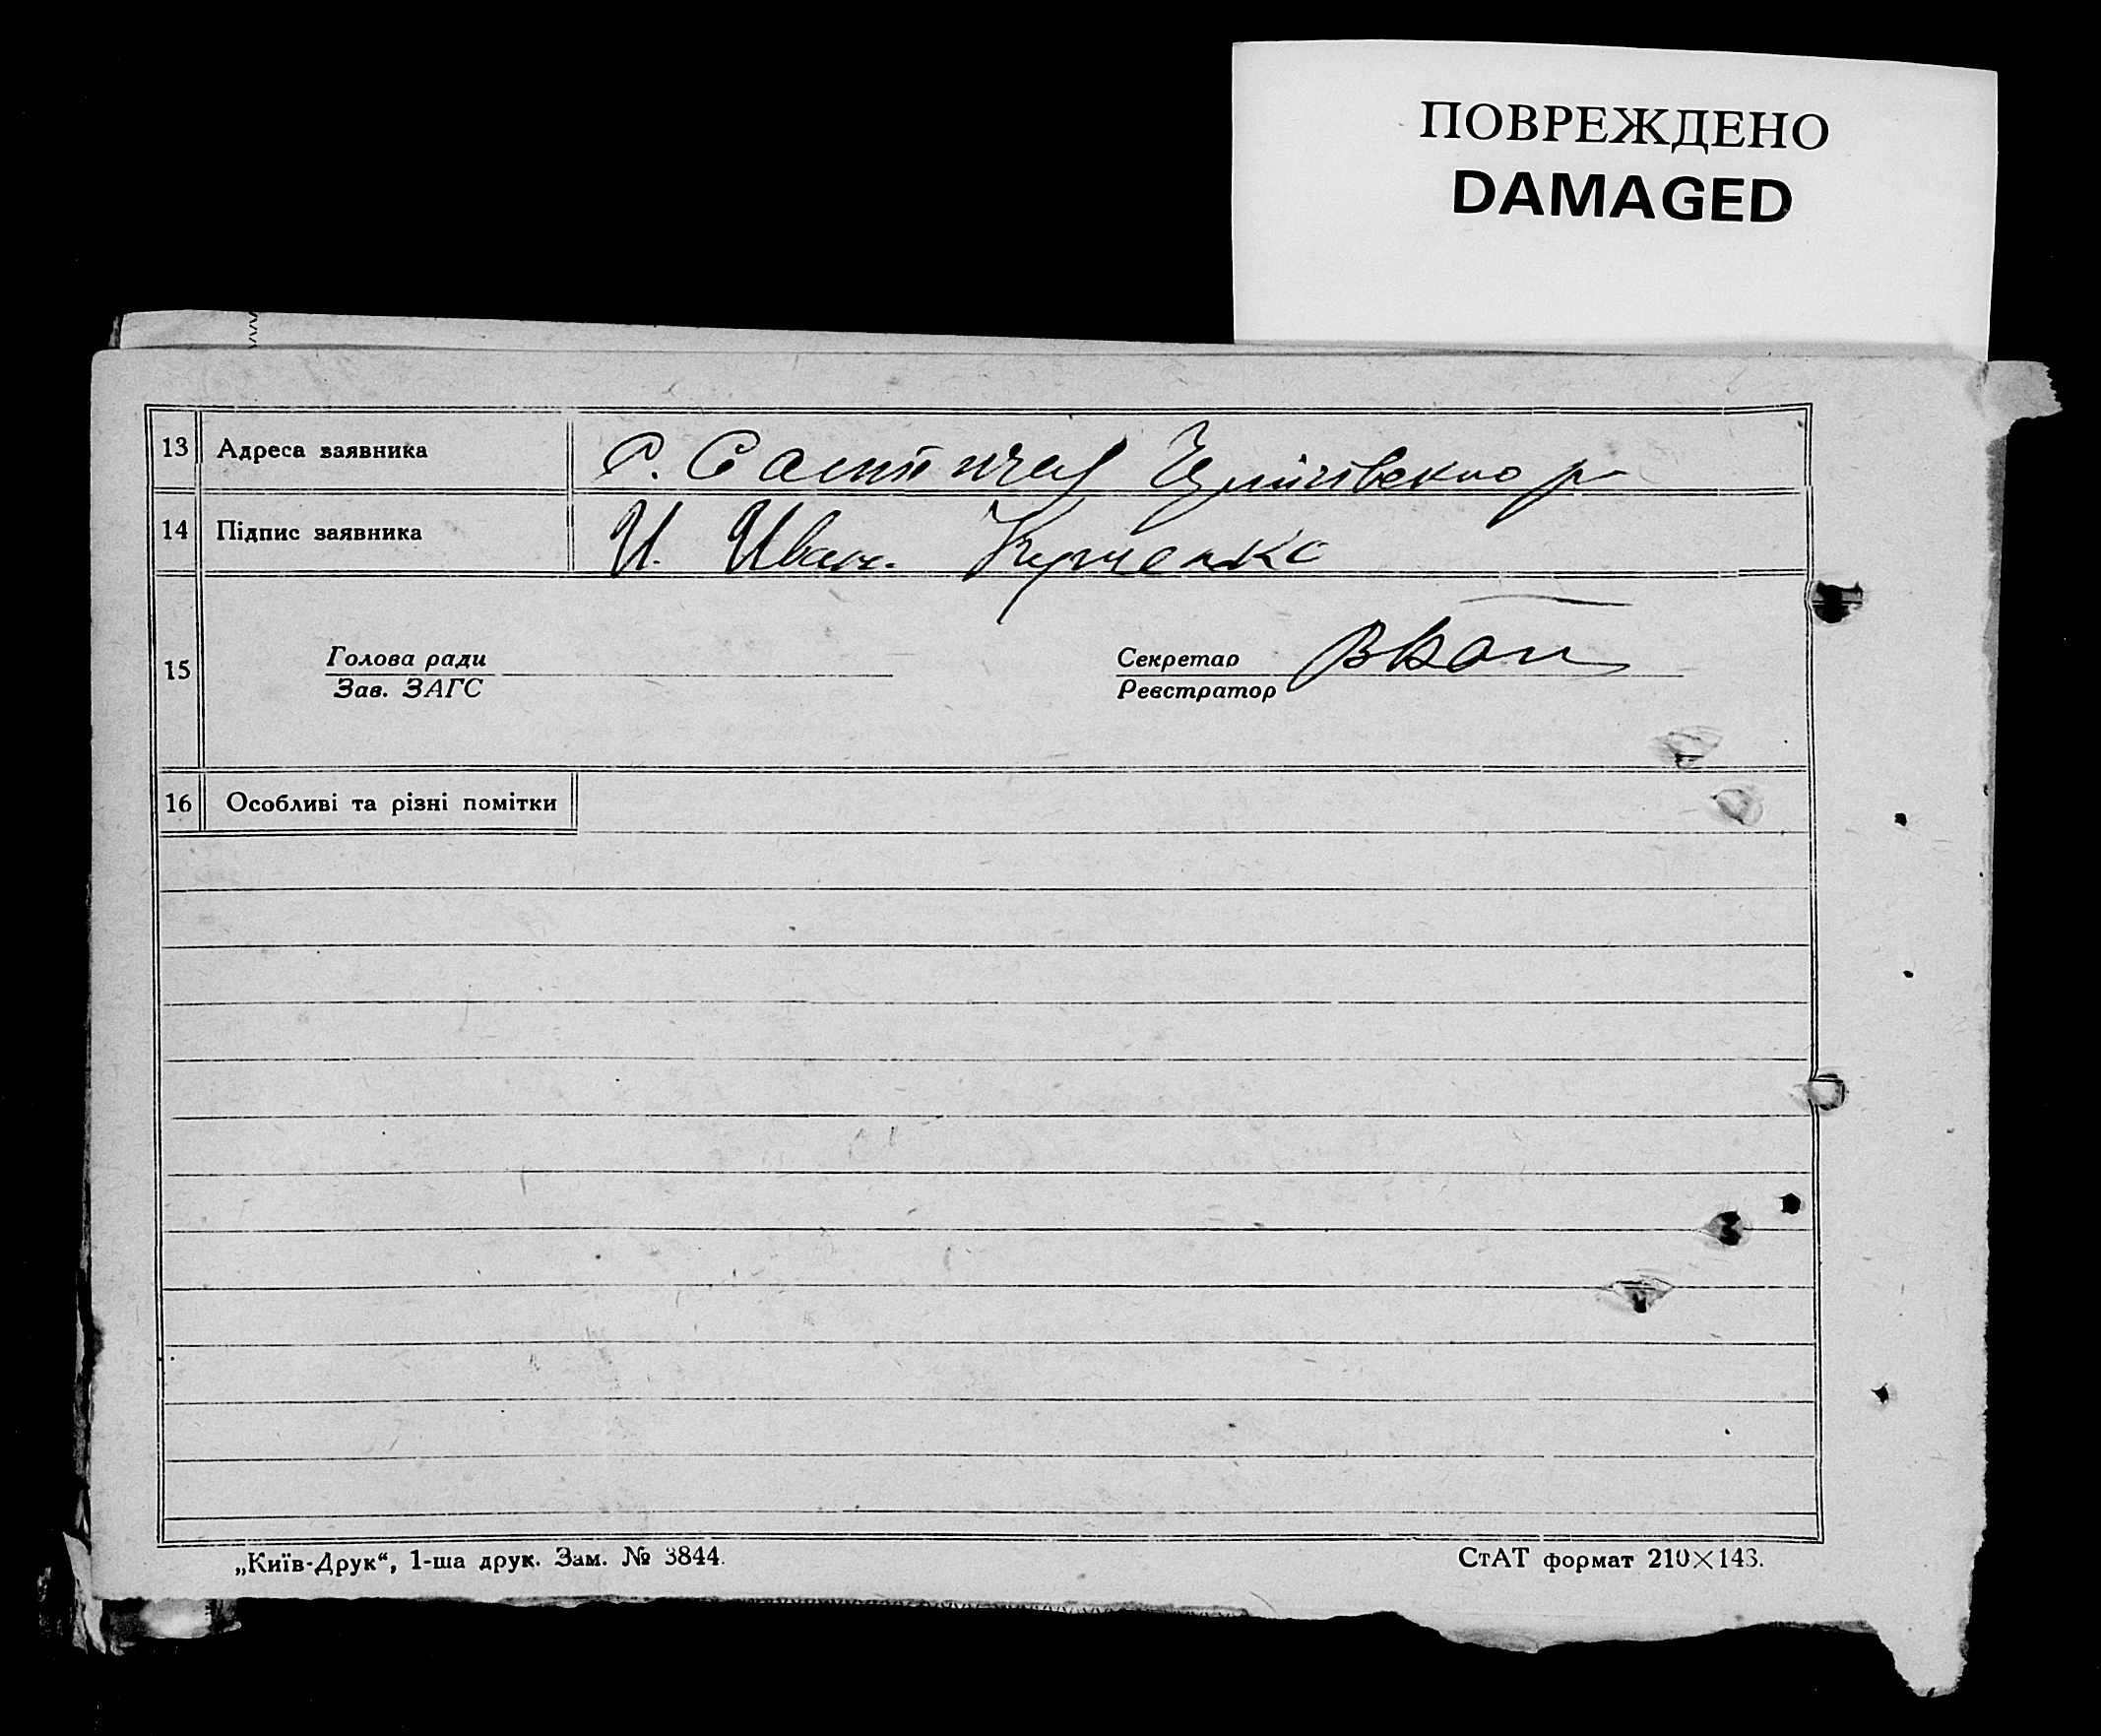 ПОВРЕЖДЕНО
DAMAGED
13 Адреса заявника С.
14 Підпис заявника И. Иван.
15 Голова ради Секретар
Зав. ЗАГС Реєстратор
16 Особливі та різні помітки
„Київ-Друк“, 1-ша друк. Зам. № 3844. СтАТ формат 210×143.